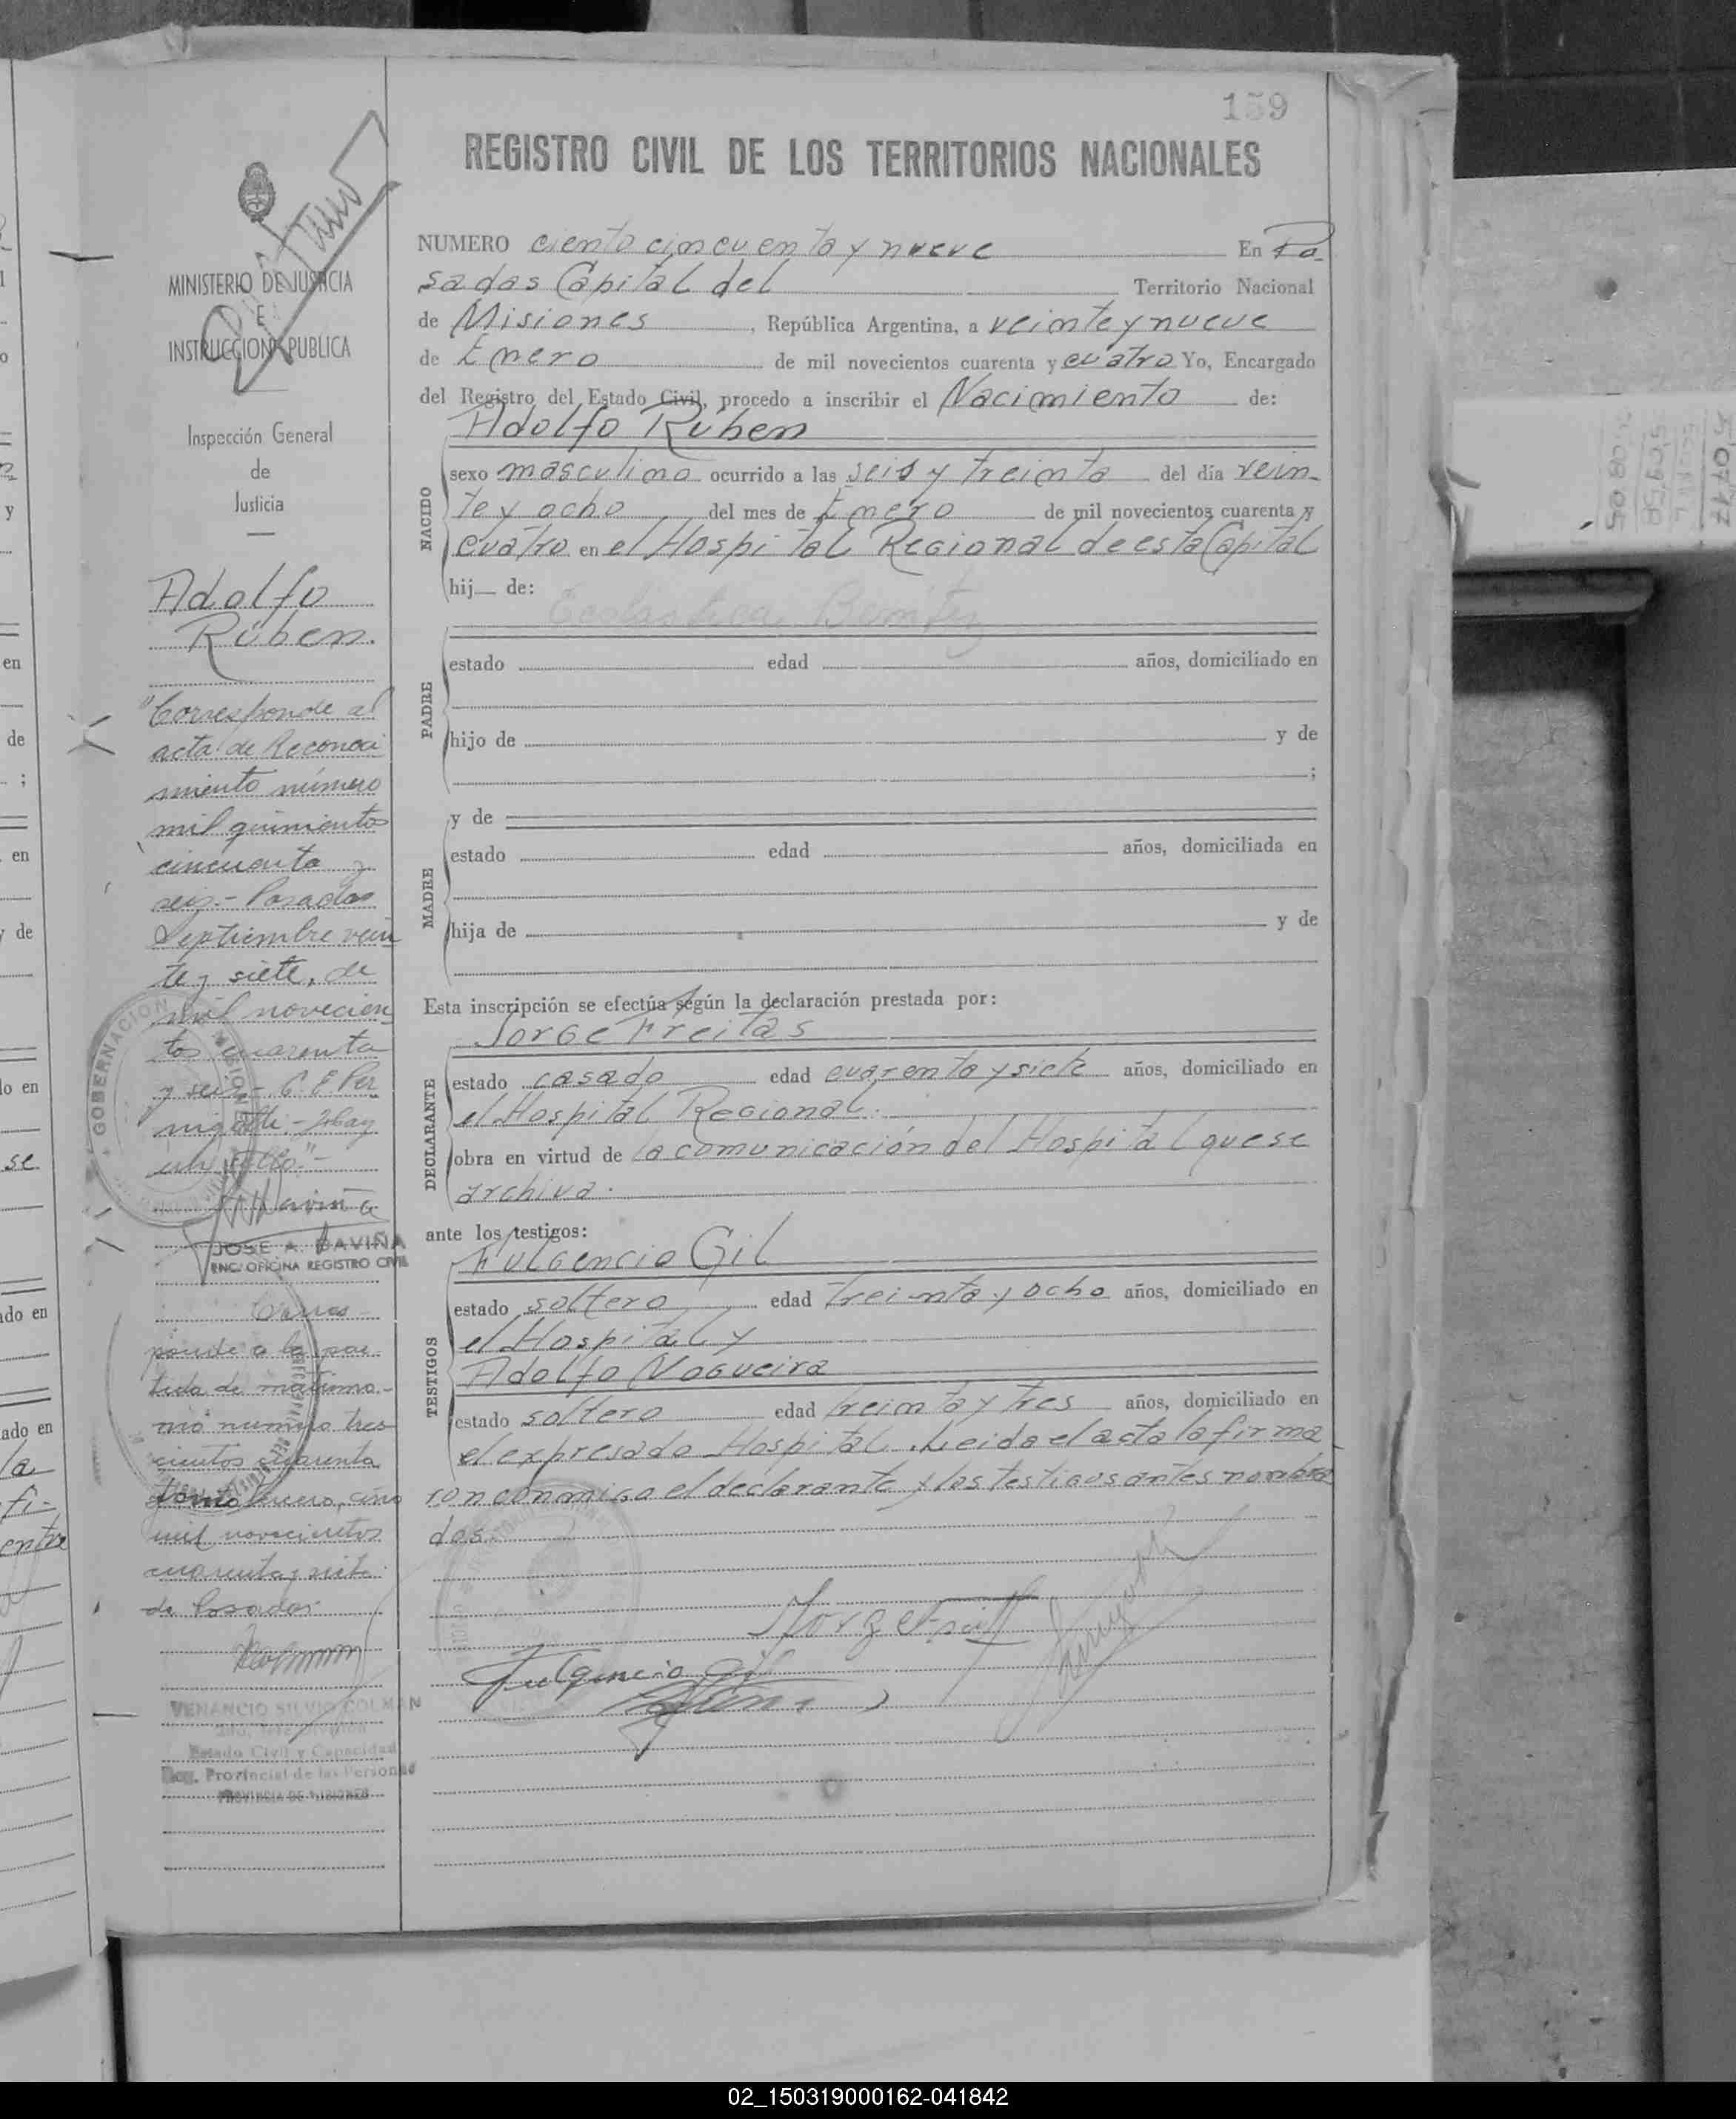 159
REGISTRO CIVIL DE LOS TERRITORIOS NACIONALES
NUMERO ciento cincuenta y nueve En Po-
sadas Capital del Territorio Nacional
de Misiones, República Argentina, a veinte y nueve
de Enero de mil novecientos cuarenta y cuatro Yo, Encargado
del Registro del Estado Civil, procedo a inscribir el Nacimiento de:
Adolfo Rúben
NACIDO
sexo masculino ocurrido a las seis y treinta del día vein-
te y ocho del mes de Enero de mil novecientos cuarenta y
cuatro en el Hospital Regional de esta Capital
hij de:
Ecolastica Benitez
PADRE
estado edad años, domiciliado en
hijo de y de
;
y de
MADRE
estado edad años, domiciliada en
hija de y de
Esta inscripción se efectúa según la declaración prestada por:
Jorge Freitas
DECLARANTE
estado casado edad cuarenta y siete años, domiciliado en
el Hospital Regional.
obra en virtud de la comunicación del Hospital que se
archiva.
ante los testigos:
Fulgencio Gil
TESTIGOS
estado soltero edad treinta y ocho años, domiciliado en
el Hospital y
Adolfo Nogueira
estado soltero edad treinta y tres años, domiciliado en
el expresado Hospital. Leida el acta la firma
ron conmigo el declarante y los testigos antes nombra
dos.
Jorge Freitas
Fulgencio Gil
MINISTERIO DE JUSTICIA
E
INSTRUCCION PUBLICA
Inspección General
de
Justicia
Adolfo
Rúben.
"Corresponde al
acta de Reconoci
miento número
mil quinientos
cincuenta y
seis.- Posadas
Septiembre vein
te y siete, de
mil novecien
tos cuarenta
y seis.- C. E. Per
nigotti.- Hay
un sello."-
J A Daviña
JOSE A. DAVIÑA
ENC. OFICINA REGISTRO CIVIL
GOBERNACION MISIONES
Corres-
ponde a la par-
tida de matrimo-
nio numero tres
cientos cuarenta
tomo tercero, año
mil novecientos
cuarenta y siete
de Posadas
VENANCIO SILVIO COLMAN
Estado Civil y Capacidad
Reg. Provincial de las Personas
PROVINCIA DE MISIONES
en
de
;
en
y de
do en
se
do en
ado en
la
fi-
entre
02_150319000162-041842